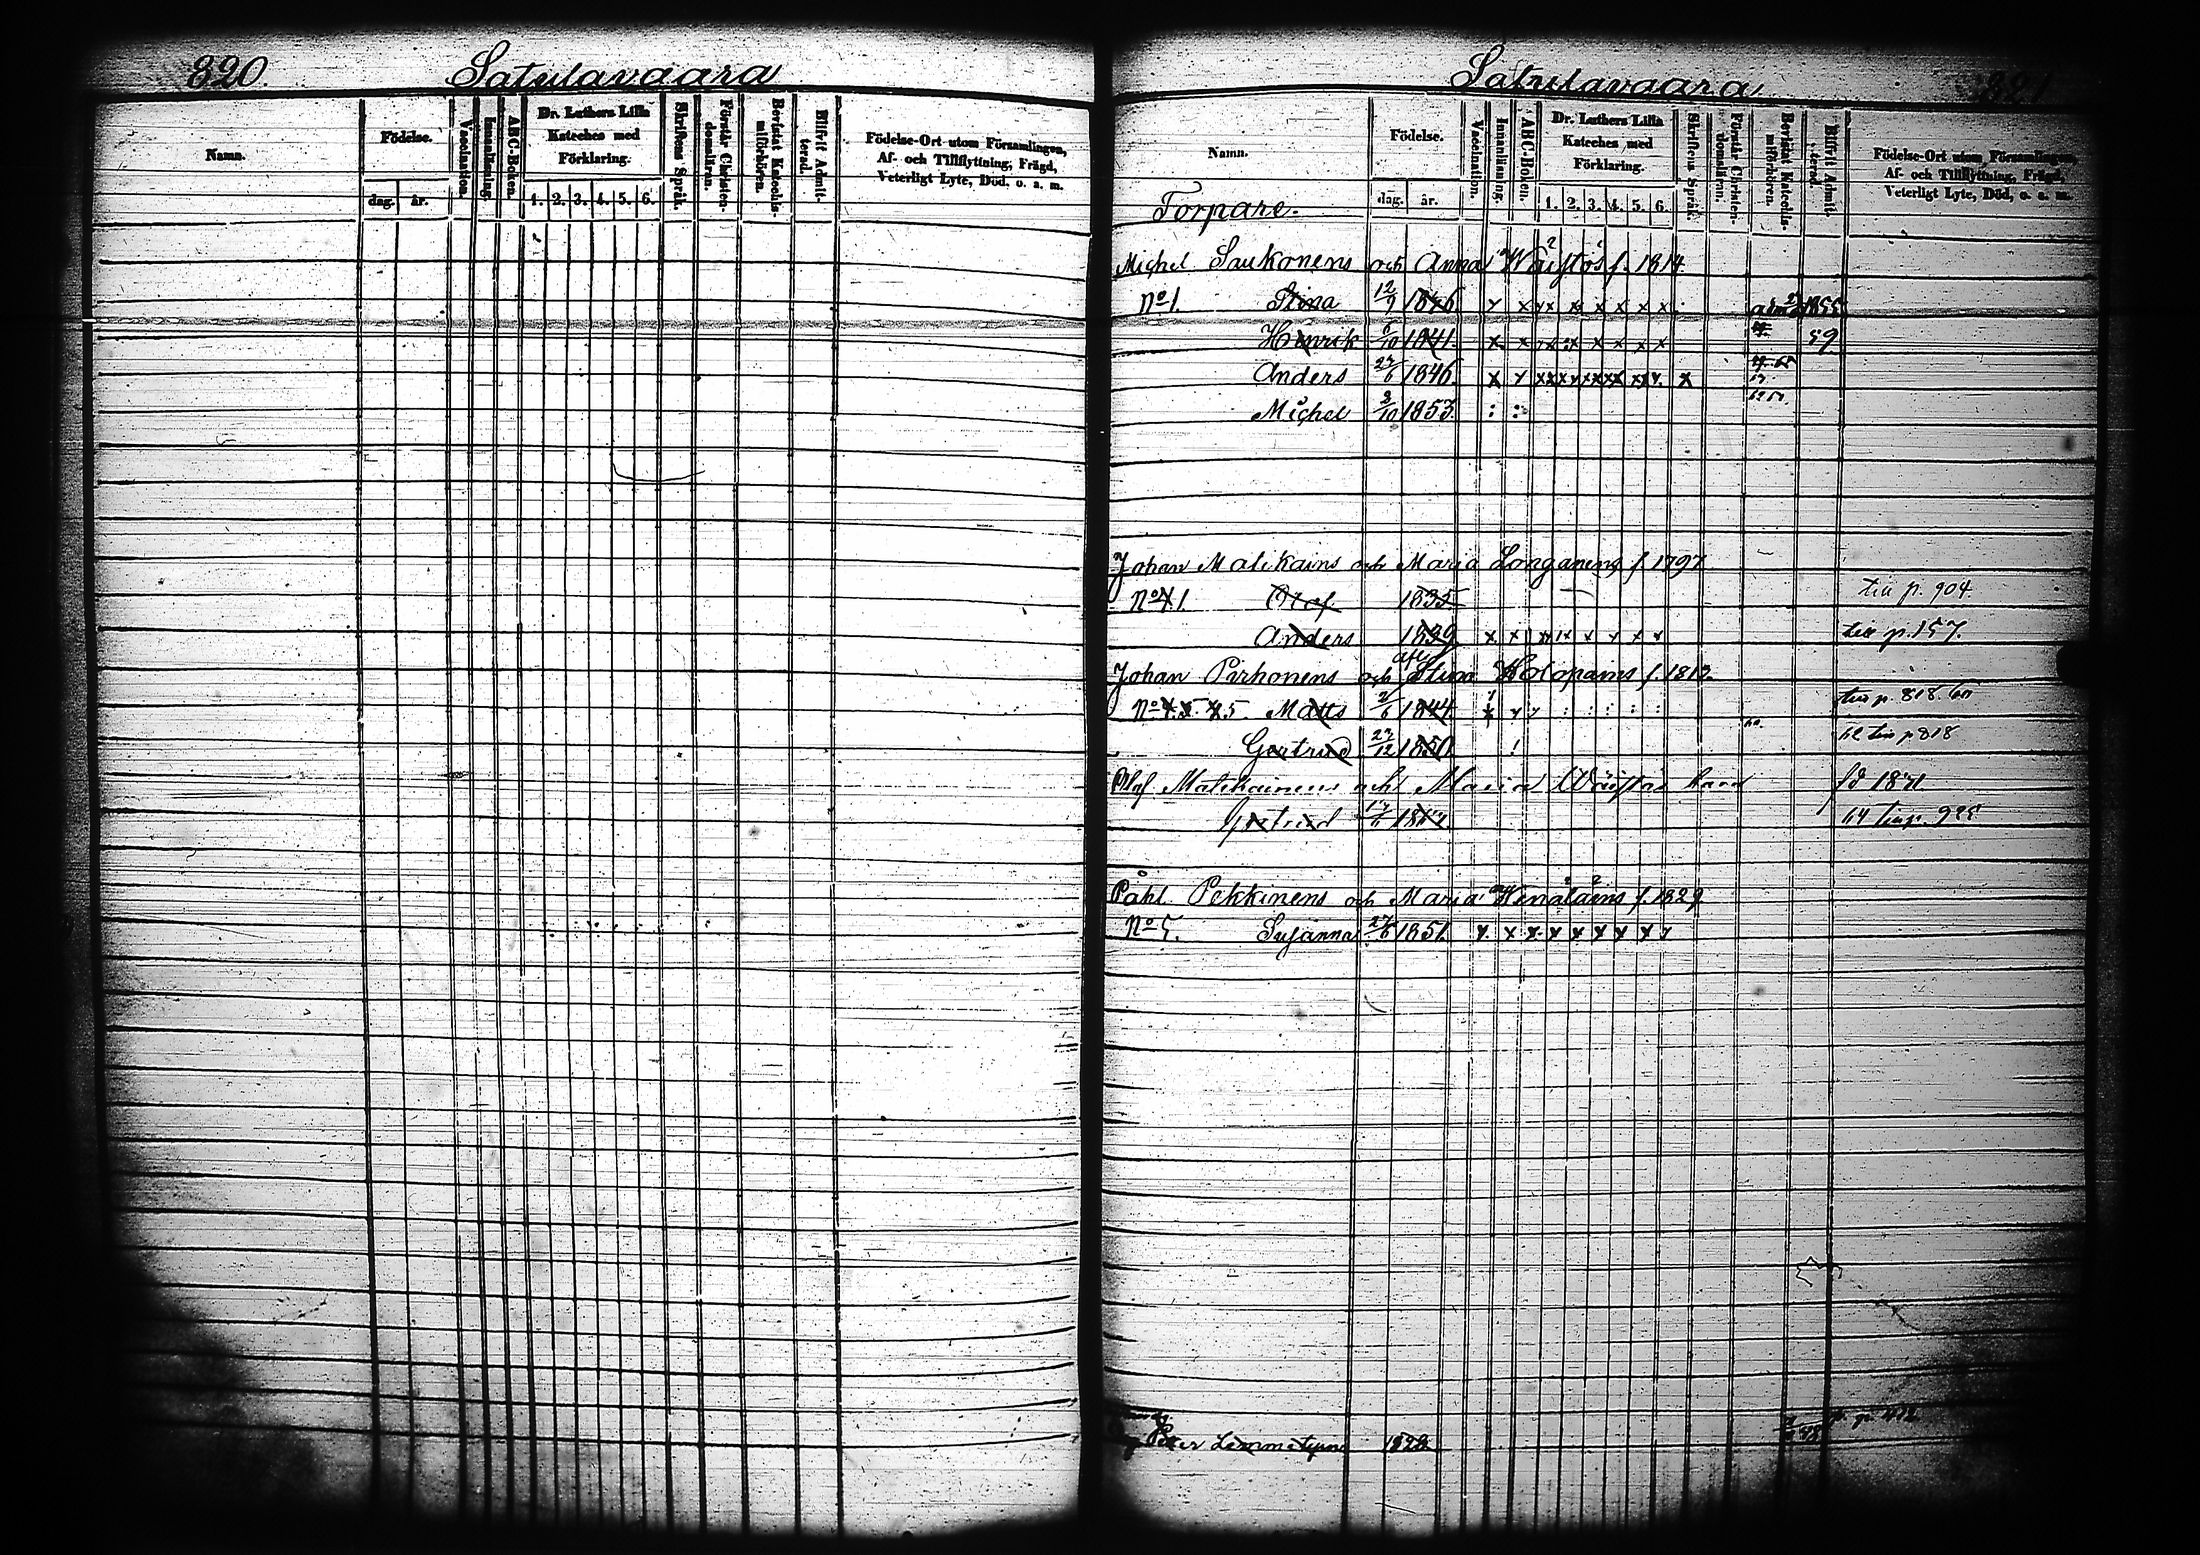 320. Satulavaara
Namn. Födelse. dag. år. Vaccination. Innanläsning. ABC-Boken. Dr. Luthers Lilla Kateches med Förklaring. 1. 2. 3. 4. 5. 6. Skriftens Språk. Förstår Christendomsläran. Bevistat Katechismiförhören. Blifvit Admitterad. Födelse-Ort utom Församlingen, Af- och Tillflyttning, Frägd, Veterligt Lyte, Död, o. s. m.
Satulavaara 321
Namn. Födelse. dag. år. Vaccination. Innanläsning. ABC-Boken. Dr. Luthers Lilla Kateches med Förklaring. 1. 2. 3. 4. 5. 6. Skriftens Språk. Förstår Christendomsläran. Bevistat Katechismiförhören. Blifvit Admitterad. Födelse-Ort utom Församlingen, Af- och Tillflyttning, Frägd, Veterligt Lyte, Död, o. s. m.
Torpare.
Michel Saukonens och Anna Wäistös f. 1814.
No 1. Stina 12/9 x x x x x x x x 1855
Henrik 1841. x x x x x x x x 59.
Anders 27/6 1846 x
Michel 3/10 1853 : :
Johan Malikains och Maria Longanens f. 1797
No 1 Olaf 1835 p. 904
Anders 1839 x x x x x x x x p. 157.
Johan Pirhonens och Stina Holopains f. 1812
No 5 Matts 2/6 1844 : : : : : p. 818
Gertrud 27/12 1850 ! p 818
Olaf Malikainens och Maria Wäistös barn
Gertrud
Påhl Pekkinens och Maria Wenäläins f. 1829
No 5. Susanna 27/6 1851. x x x x x x x x x
Petter